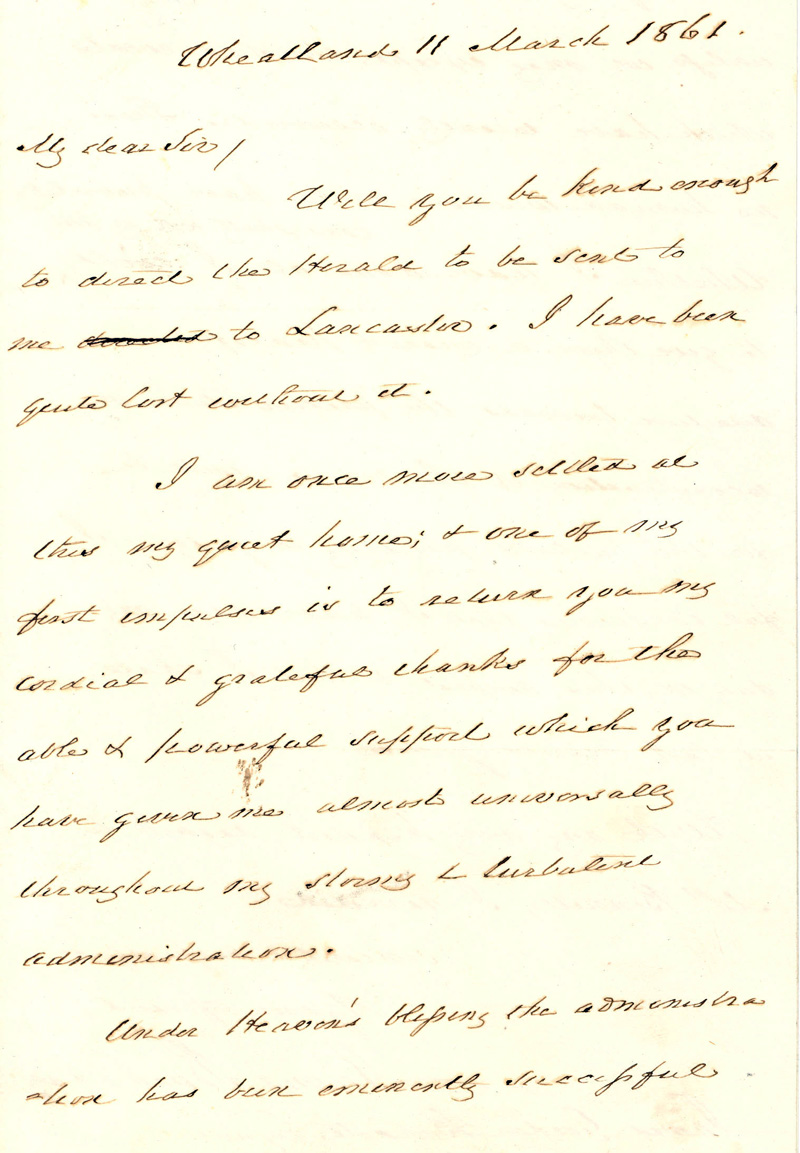 Wheatland 11 March 1861.
My dear Sir/
Will you be kind enough
to direct the Herald to be sent to
me to Lancaster. I have been
quite lost without it.
I am once more settled at
this my quiet home; & one of my
first impulses is to return you my
cordial & grateful thanks for the
able & powerful support which you
have given me almost universally
throughout my stormy & turbulent
administration.
Under Heaven's blessing the administra
-tion has been eminently successful